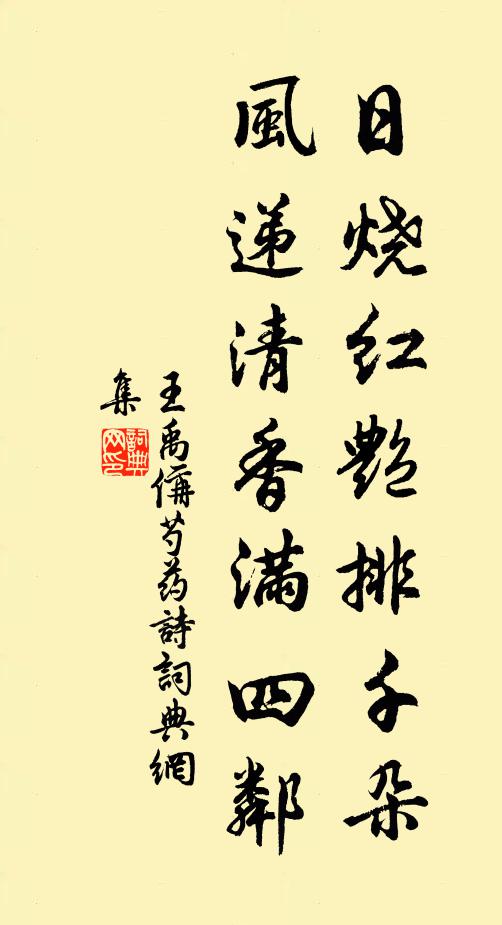 日烧红艷排千朵
風递清香满四鄰
王禹偁芍药詩詞典網
集
詞典网印